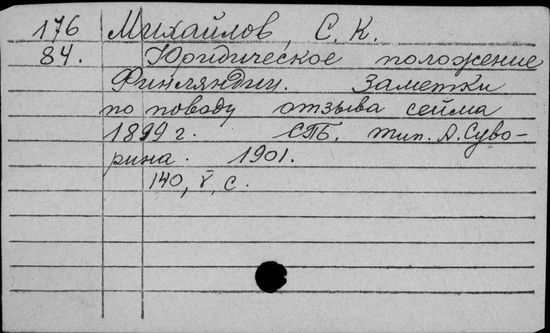 176 Михайлов, С. К.
84. Юридическое положение
Финляндии. Заметки
по поводу отзыва сейма
1899 г. СПБ, тип. А. Суво-
рина. 1901.
140, V, с.